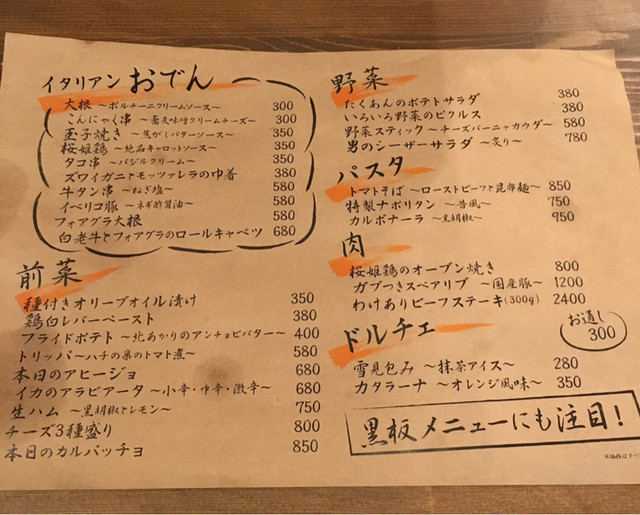 イタリアンおでん
大根 〜ポルチーニクリームソース〜 300
こんにゃく串 〜蕎麦味噌クリームチーズ〜 300
玉子焼き 〜焦がしバターソース〜 350
桜姫鶏 〜絶品キャロットソース〜 350
タコ串 〜バジルクリーム〜 350
ズワイガニとモッツァレラの巾着 380
牛タン串 〜ねぎ塩〜 580
イベリコ豚 〜ネギ酢醤油〜 580
フォアグラ大根 580
白老牛とフォアグラのロールキャベツ 680
前菜
種付きオリーブオイル漬け 350
鶏白レバーペースト 380
フライドポテト 〜北あかりのアンチョビバター〜 400
トリッパ 〜ハチの巣のトマト煮〜 580
本日のアヒージョ 680
イカのアラビアータ 〜小辛・中辛・激辛〜 680
生ハム 〜黒胡椒とレモン〜 750
チーズ3種盛り 800
本日のカルパッチョ 850
野菜
たくあんのポテトサラダ 380
いろいろ野菜のピクルス 380
野菜スティック 〜チーズバーニャカウダ〜 580
男のシーザーサラダ 〜炙り〜 780
パスタ
トマトそば 〜ローストビーフと昆布麺〜 850
特製ナポリタン 〜昔風〜 750
カルボナーラ 〜黒胡椒〜 950
肉
桜姫鶏のオーブン焼き 800
ガブつきスペアリブ 〜国産豚〜 1200
わけありビーフステーキ(300g) 2400
お通し
300
ドルチェ
雪見包み 〜抹茶アイス〜 280
カタラーナ 〜オレンジ風味〜 350
黒板メニューにも注目!